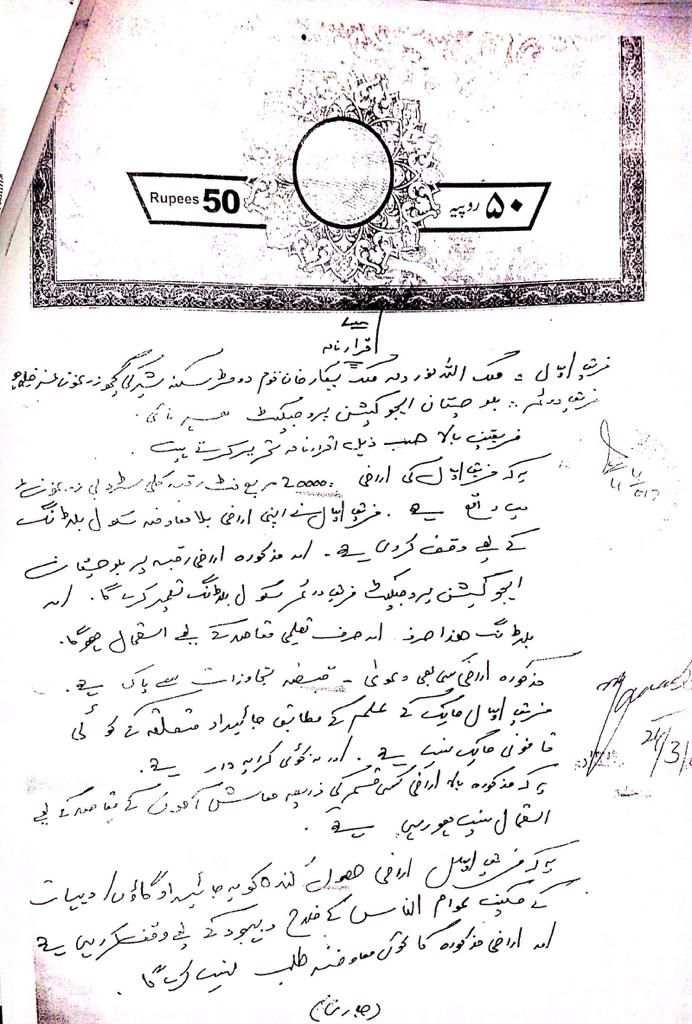 Rupees 50
۵۰ روپیہ
اقرارنامہ
فریق اول :- ملک اللہ نور ولد ملک بیگار خان قوم دومڑ سکنہ
فریق دوئم :- بلوچستان ایجوکیشن پروجیکٹ
فریقین بالا حسب ذیل اقرارنامہ تحریر کرتے ہیں۔
یہ کہ فریق اول کی اراضی 20000 مربع فٹ رقبہ کلی
میں واقع ہے۔ فریق اول نے اپنی اراضی بلا معاوضہ سکول بلڈنگ
کے لیے وقف کردی ہے۔ اور مذکورہ اراضی رقبہ پر بلوچستان
ایجوکیشن پروجیکٹ فریق دوئم سکول بلڈنگ تعمیر کرے گا۔ اور
بلڈنگ ھذا صرف اور صرف تعلیمی مقاصد کے لیے استعمال ھوگا۔
مذکورہ اراضی کسی بھی دعویٰ - قبضہ تجاوزات سے پاک ہے۔
فریق اول مالک کے علم کے مطابق جائیداد متعلقہ کے کوئی
قانونی مالک نہیں ہے۔ اور نہ کوئی کرایہ دار ہے۔
یہ کہ مذکورہ بالا اراضی کسی قسم کی ذریعہ معاش آمدن کے مقاصد کے لیے
استعمال نہیں ہورہی ہے۔
یہ کہ فریق اول اراضی حصول کنندہ کو یہ جائیداد گاؤں / دیہات
کے مکین عوام الناس کے فلاح و بہبود کے لیے وقف کررہی ہے
اور اراضی مذکورہ کا کوئی معاوضہ طلب نہیں کرے گا۔
(جاری)